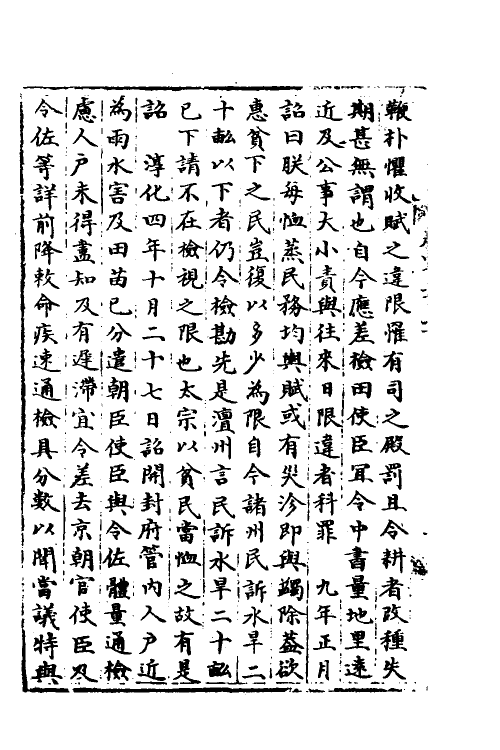 鞭扑懼收賦之違限懼有司之殿罰且令耕者改種失
期甚無謂也自今應差檢田使臣冝令中書量地里遠
近及公事大小責與往來日限違者科罪　九年正月
詔曰朕每恤蒸民務均輿賦或有災沴即與蠲除葢欲
惠貧下之民豈復以多少為限自今諸州民訴水旱二
十畝以下者仍令檢勘先是澶州言民訴水旱二十畝
已下請不在檢視之限也太宗以貧民當恤之故有是
詔　淳化四年十月二十七日詔開封府管內人戶近
為雨水害及田苗已分遣朝臣使臣與令佐體量通檢
慮人戶未得盡知及有遲滯宜令差去京朝官使臣及
令佐等詳前降敕命疾速通檢具分數以聞當議特與